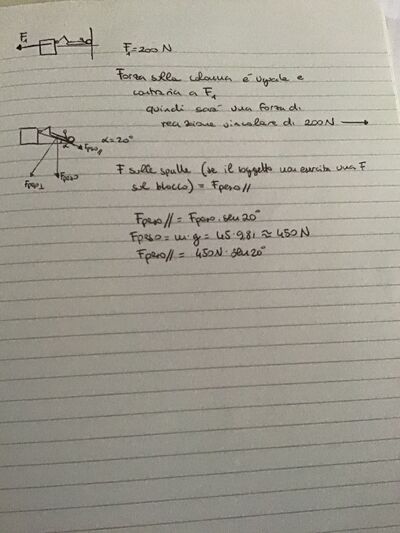 F₁
F₁ = 200 N
Forza sulla colonna è uguale e
contraria a F₁
quindi sarà una forza di
reazione vincolare di 200 N →
α = 20°
α
Fpeso//
Fpeso⊥
Fpeso
F sulle spalle (se il soggetto non esercita una F
sul blocco) = Fpeso//
Fpeso// = Fpeso · sen 20°
Fpeso = m · g = 45 · 9.81 ≈ 450 N
Fpeso// = 450 N · sen 20°